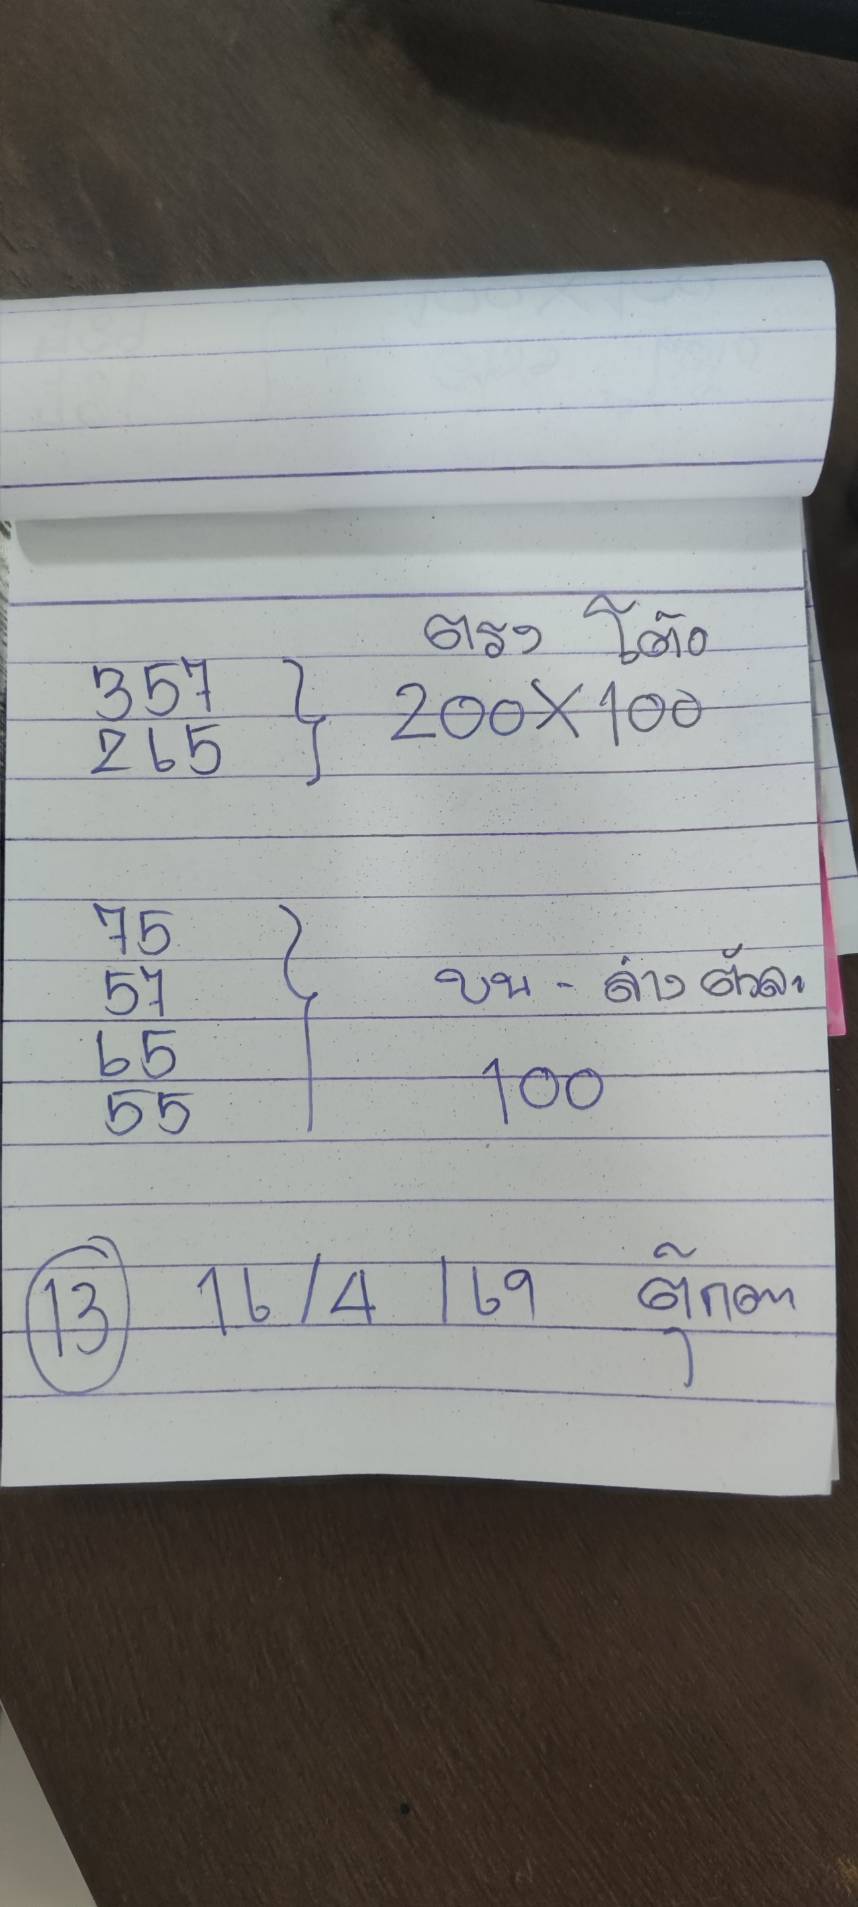 ตรง โต๊ด
357 } 200X100
265
75
57 } บน - ล่าง ตัวละ
65 100
55
13 16/4/69 ตุ๊กตา